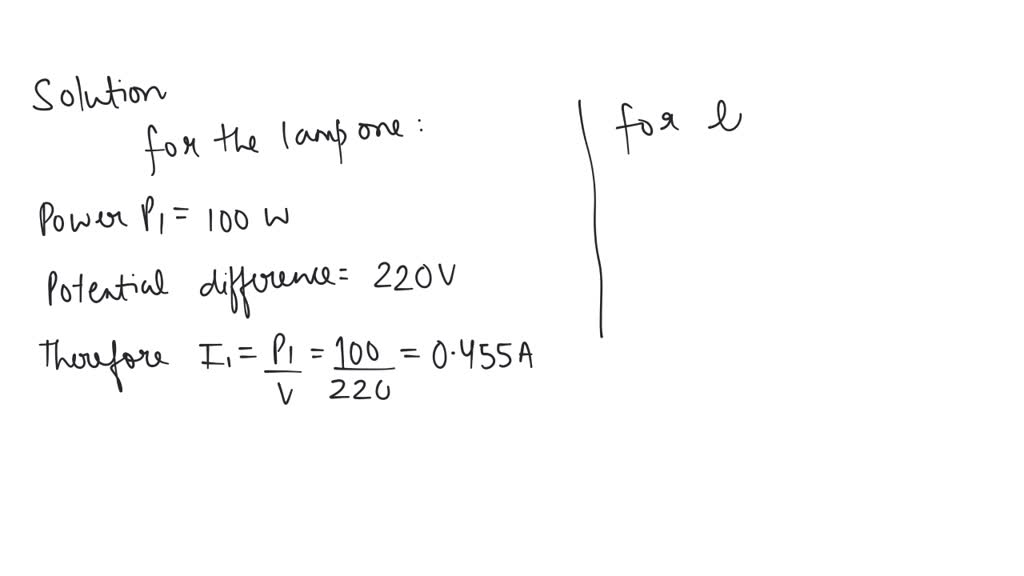 Solution
for the lamp one:
Power P1 = 100 W
Potential difference = 220V
Therefore I1 = P1/V = 100/220 = 0.455A
for l